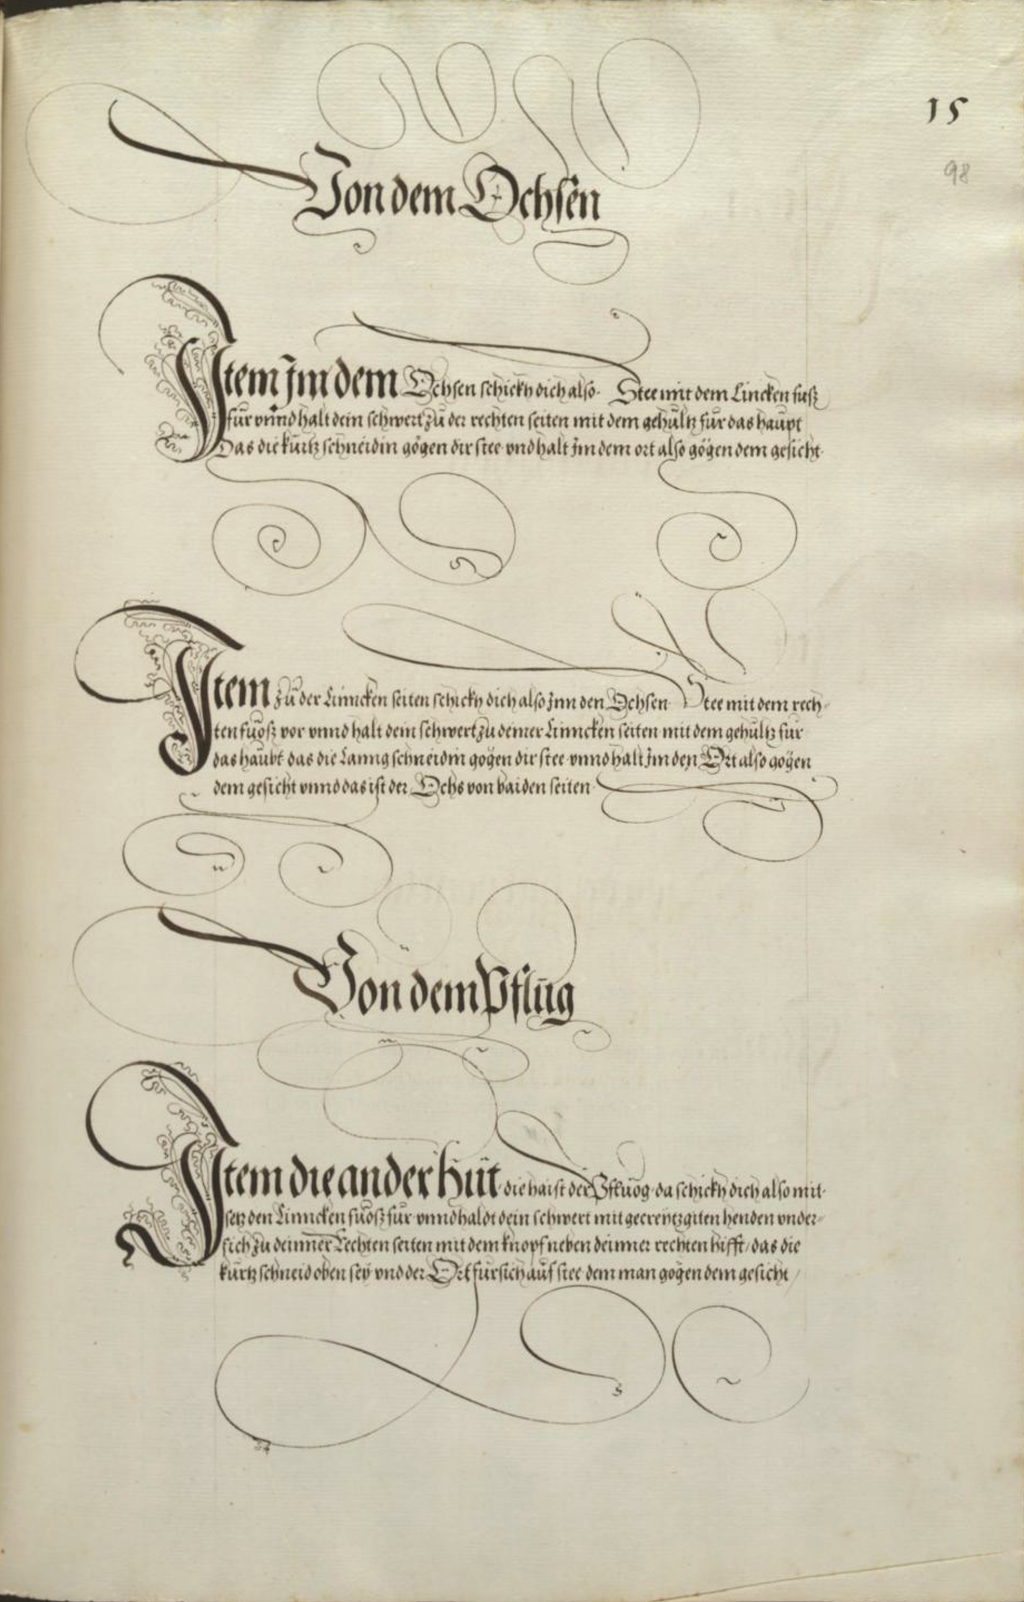 15
98
Von dem Ochsen
Item Jm dem Ochsen schickh dich also Stee mit dem Lincken fusz
für vnnd halt dein schwert zů der rechten seiten mit dem gehültz für das haupt
Das die kurtz schneidin gögen dir stee vnd halt jm dem ort also gögen dem gesicht
Item zů der Linncken seiten schickh dich also Jnn den Ochsen Stee mit dem rech-
ten fuosz vor vnnd halt dein schwert zu deiner Linncken seiten mit dem gehültz für
das haubt das die Lanng schneidin gögen dir stee vnnd halt jm den Ort also gögen
dem gesicht vnnd das ist der Ochs von baiden seiten
Von dem Pflüg
Item die ander Hüt die haist der Pfluog da schickh dich also mit
setz den Linncken fuosz für vnnd haldt dein schwert mit gecreytzgiten henden vnder-
sich zu deinner Rechten seiten mit dem knopf neben deinner rechten hifft / das die
kurtz schneid oben sey vnd der Ort für sich auf stee dem man gögen dem gesicht /